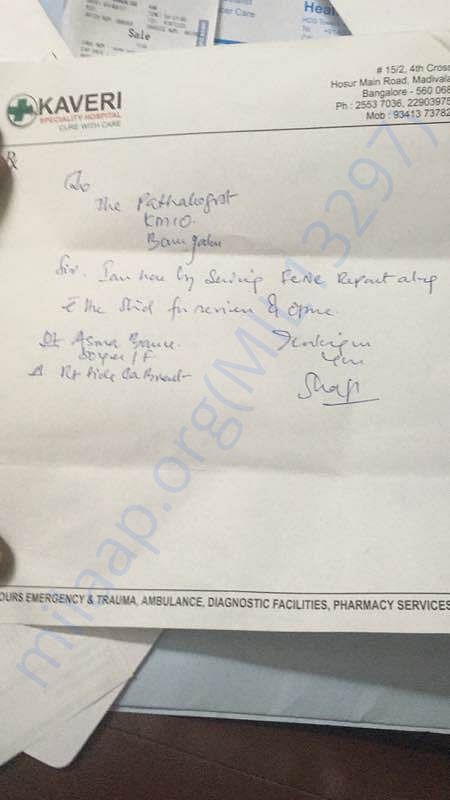 Sale
Heal
er Care
HCG Tow
KAVERI
SPECIALITY HOSPITAL
CURE WITH CARE
# 15/2, 4th Cross
Hosur Main Road, Madivala
Bangalore - 560 068
Ph : 2553 7036, 22903975
Mob : 93413 73782
℞
To
The Pathologist
KMIO
Bangalore
Sir. I am here by sending FNAC Report along
c the slid for review &
Pt Asma
50yrs/F
Rt side Ca Breast
Thanking
you
OURS EMERGENCY & TRAUMA, AMBULANCE, DIAGNOSTIC FACILITIES, PHARMACY SERVICES
milaap.org(MIL113297)